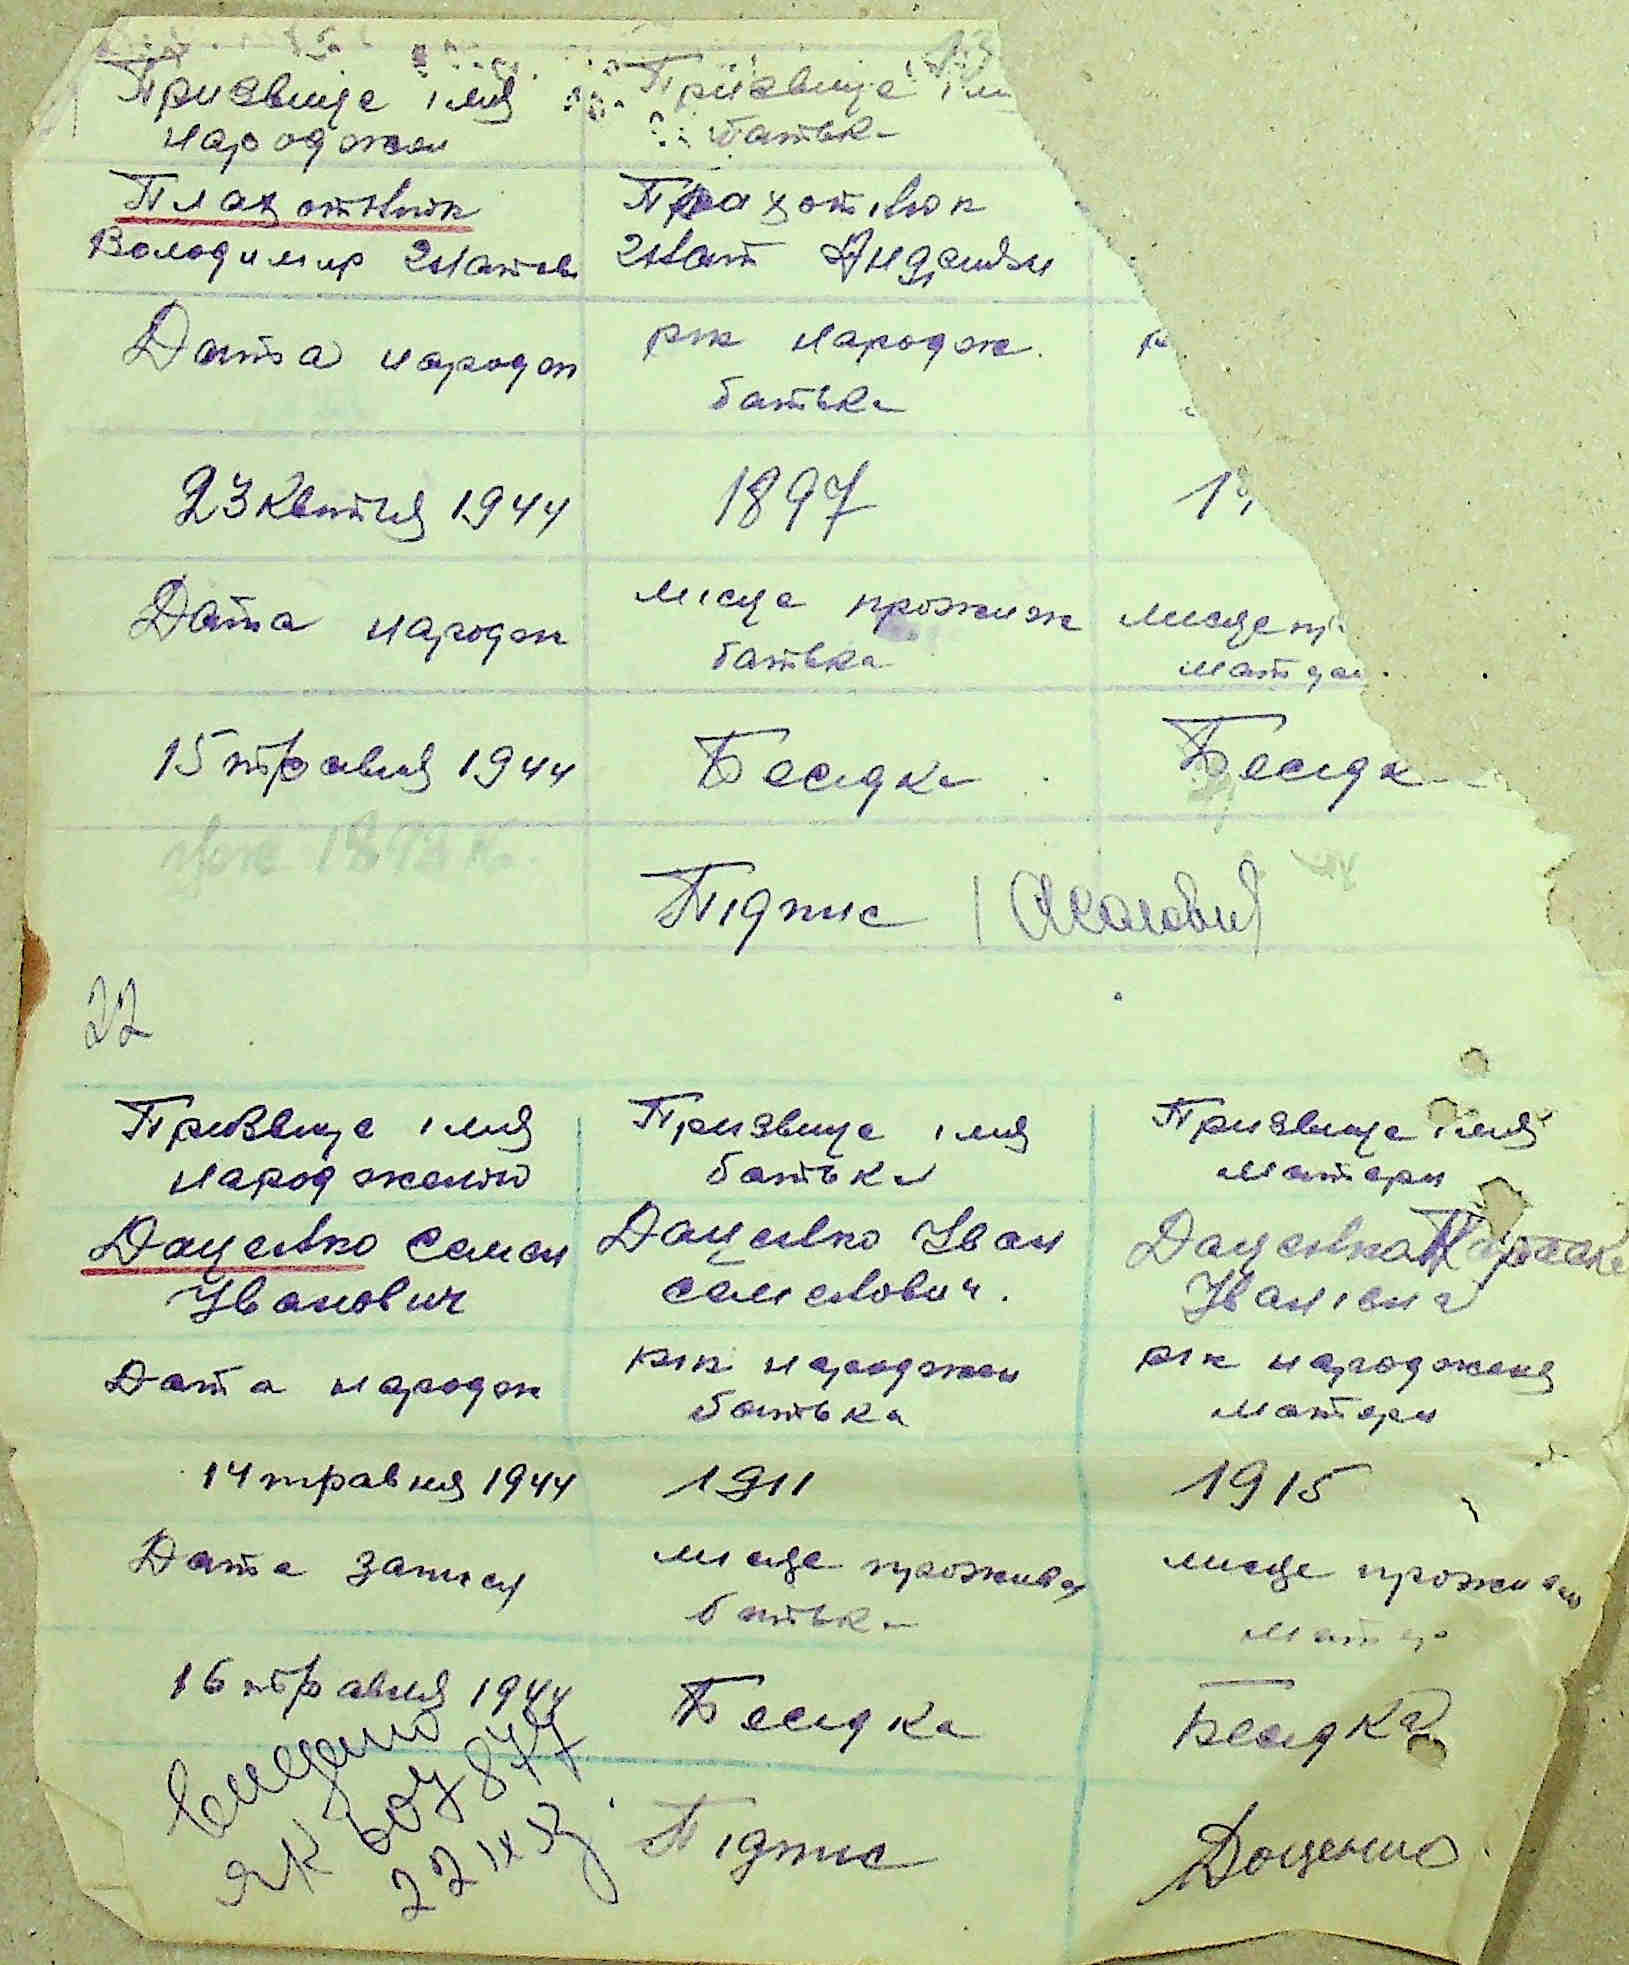 Призвище імя
народжен
Призвище ім
батька
Плахотнюк
Володимир Гнатов
Плахотнюк
Гнат
рік народж.
батька
Дата народж
23 Квітня 1944
1897
Дата народж
місце прожив
батька
місце пр
матер
15 травня 1944
Бесідка
Бесідк
Підпис
22
Призвище імя
народженю
Призвище імя
батька
Призвище імя
матери
Даценко Семен
Іванович
Даценко Іван
Семенович.
Даценко
Іванівна
Дата народж
рік народжен
батька
рік народженя
матери
14 травня 1944
1911
1915
Дата запису
місце прожива
батька
місце прожи
матер
16 травня 1944
Бесідка
Бесідка
видано
22 IX
Підпис
Доценко